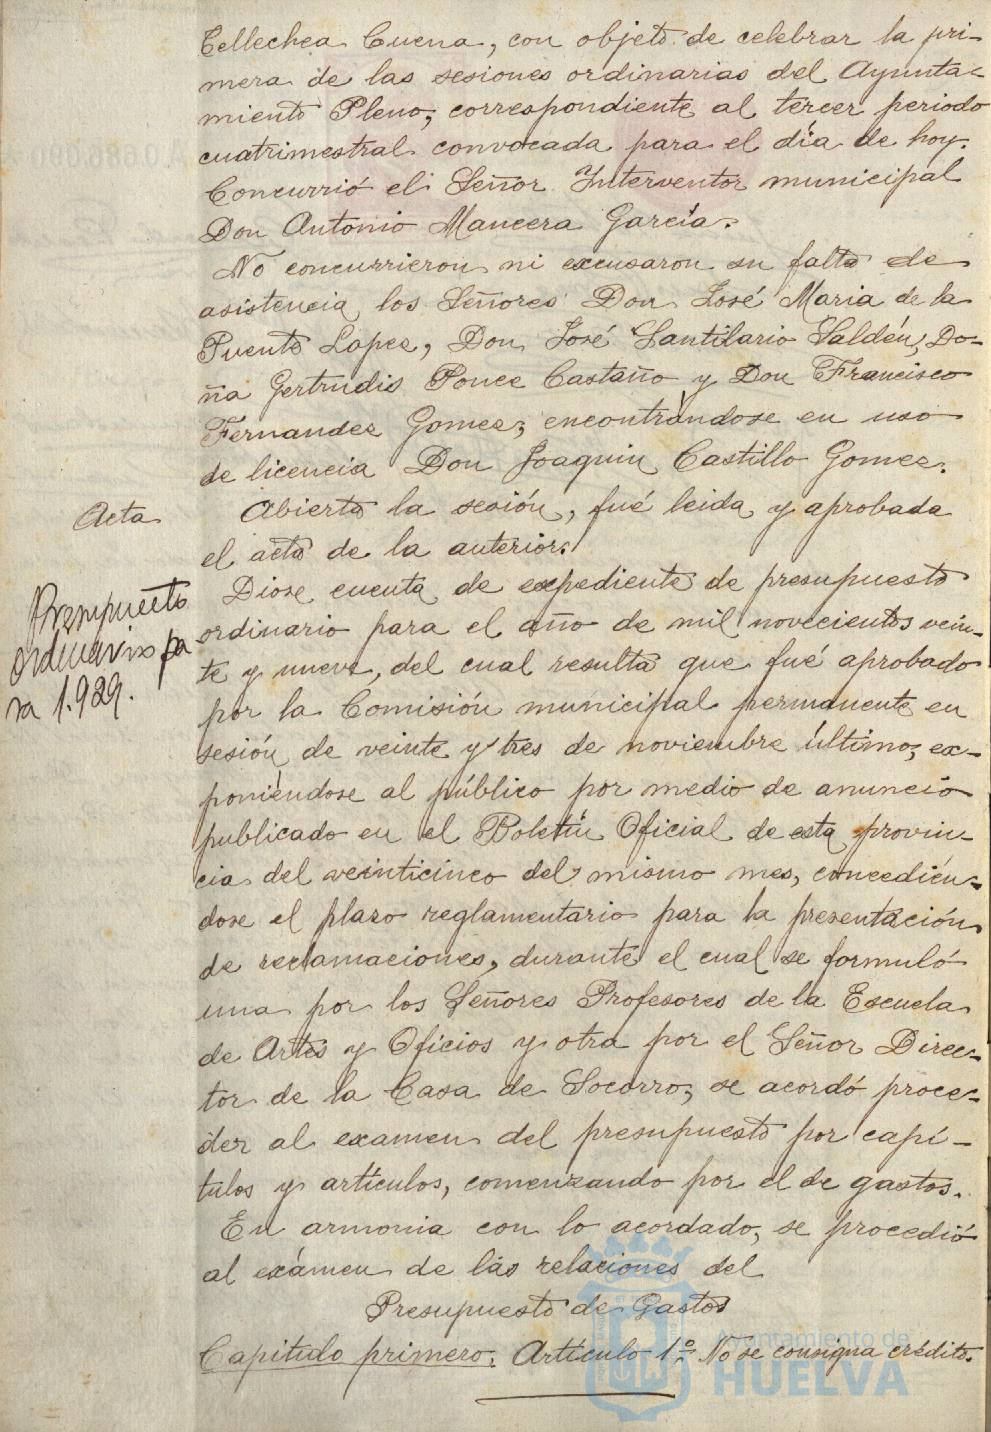 Tellechea Cuena, con objeto de celebrar la pri-
mera de las sesiones ordinarias del Ayunta-
miento Pleno, correspondiente al tercer periodo
cuatrimestral convocada para el día de hoy.
Concurrió el Señor Interventor municipal
Don Antonio Mancera García.
No concurrieron ni excusaron su falta de
asistencia los Señores Don José Maria de la
Puente Lopez, Don José Santilario Saldén, Do-
ña Gertrudis Ponce Castaño y Don Francisco
Fernandez Gomez, encontrándose en uso
de licencia Don Joaquin Castillo Gomez.
Acta
Abierta la sesión, fué leida y aprobada
el acta de la anterior.
Presupuesto
ordinario pa
ra 1.929.
Diose cuenta de expediente de presupuesto
ordinario para el año de mil novecientos vein-
te y nueve, del cual resulta que fué aprobado
por la Comisión municipal permanente en
sesión de veinte y tres de noviembre último, ex-
poniéndose al público por medio de anuncio
publicado en el Boletín Oficial de esta provin-
cia del veinticinco del mismo mes, concedién-
dose el plazo reglamentario para la presentación
de reclamaciones, durante el cual se formuló
una por los Señores Profesores de la Escuela
de Artes y Oficios y otra por el Señor Direc-
tor de la Casa de Socorro, se acordó proce-
der al examen del presupuesto por capí-
tulos y artículos, comenzando por el de gastos.
En armonia con lo acordado, se procedió
al exámen de las relaciones del
Presupuesto de Gastos
Capitulo primero. Artículo 1º. No se consigna crédito.
Ayuntamiento de
HUELVA